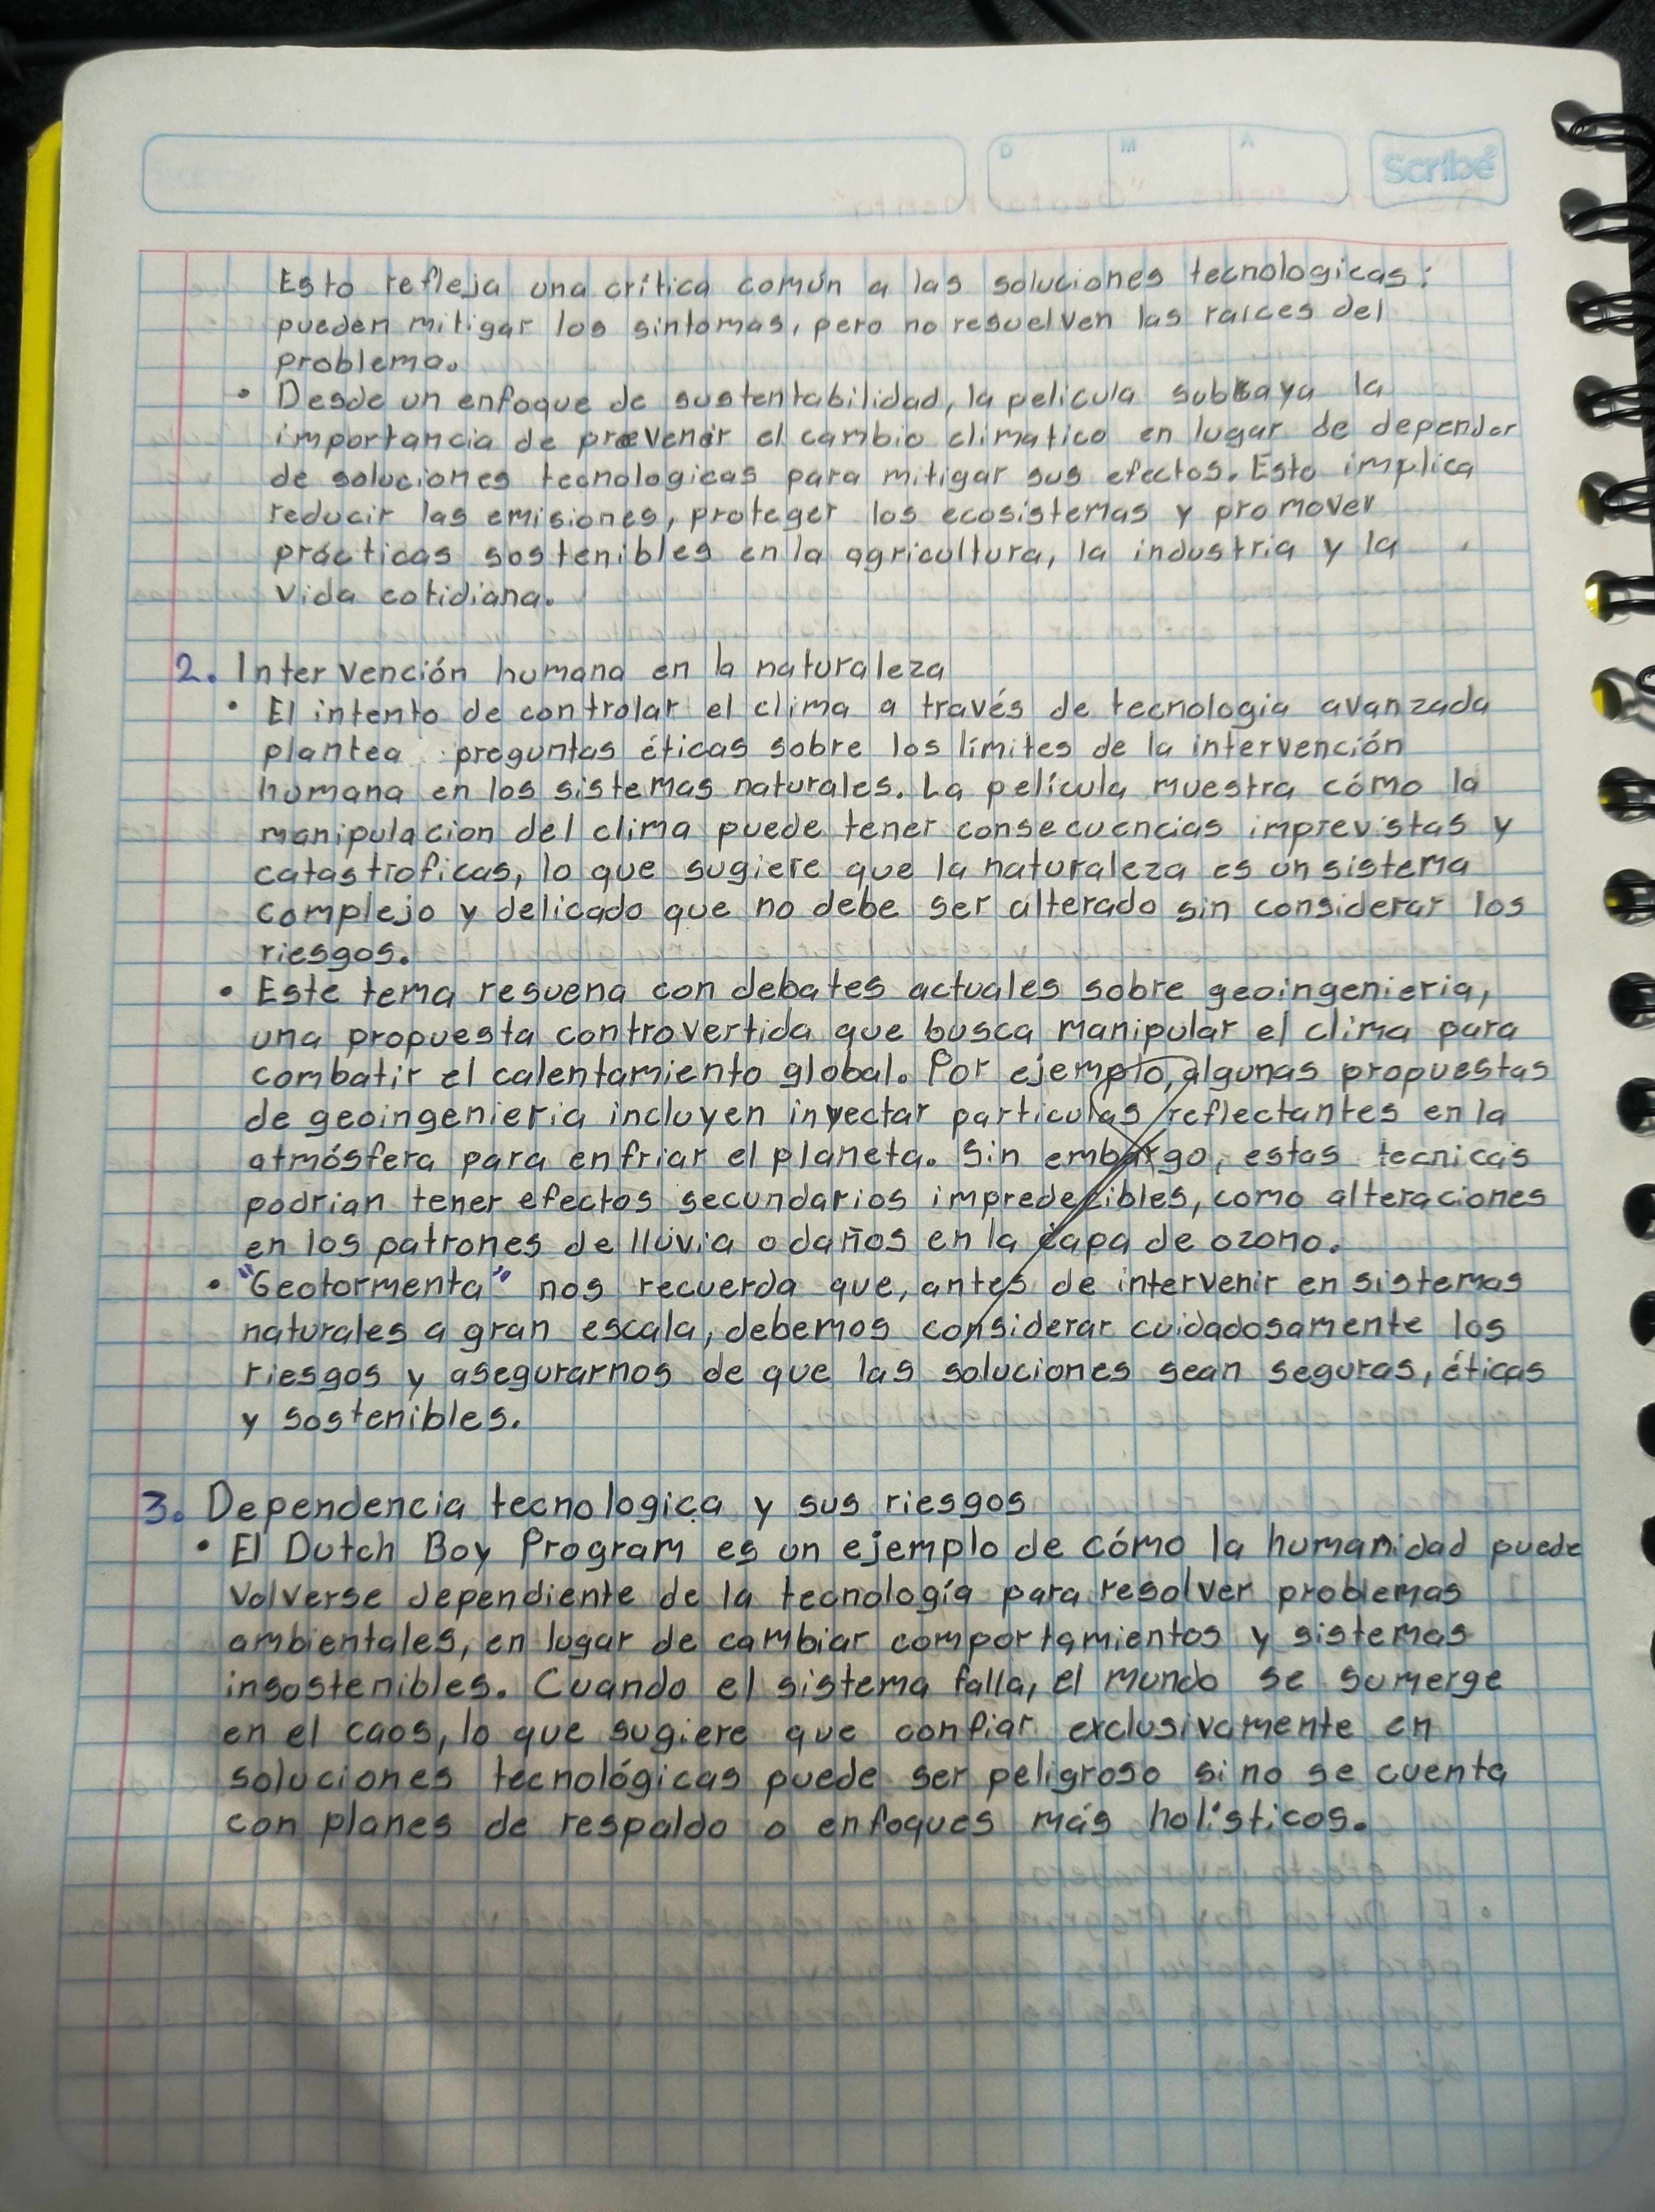 D M A Scribe
Esto refleja una crítica común a las soluciones tecnologicas:
pueden mitigar los sintomas, pero no resuelven las raices del
problema.
• Desde un enfoque de sustentabilidad, la pelicula subraya la
importancia de prevenir el cambio climatico en lugar de depender
de soluciones tecnologicas para mitigar sus efectos. Esto implica
reducir las emisiones, proteger los ecosistemas y promover
prácticas sostenibles en la agricultura, la industria y la
vida cotidiana.
2. Intervención humana en la naturaleza
• El intento de controlar el clima a través de tecnologia avanzada
plantea preguntas éticas sobre los límites de la intervención
humana en los sistemas naturales. La película muestra cómo la
manipulacion del clima puede tener consecuencias imprevistas y
catastroficas, lo que sugiere que la naturaleza es un sistema
complejo y delicado que no debe ser alterado sin considerar los
riesgos.
• Este tema resuena con debates actuales sobre geoingenieria,
una propuesta controvertida que busca manipular el clima para
combatir el calentamiento global. Por ejemplo, algunas propuestas
de geoingenieria incluyen inyectar particulas reflectantes en la
atmósfera para enfriar el planeta. Sin embargo, estas tecnicas
podrian tener efectos secundarios impredecibles, como alteraciones
en los patrones de lluvia o daños en la capa de ozono.
• "Geotormenta" nos recuerda que, antes de intervenir en sistemas
naturales a gran escala, debemos considerar cuidadosamente los
riesgos y asegurarnos de que las soluciones sean seguras, éticas
y sostenibles.
3. Dependencia tecnologica y sus riesgos
• El Dutch Boy Program es un ejemplo de cómo la humanidad puede
volverse dependiente de la tecnología para resolver problemas
ambientales, en lugar de cambiar comportamientos y sistemas
insostenibles. Cuando el sistema falla, el mundo se sumerge
en el caos, lo que sugiere que confiar exclusivamente en
soluciones tecnológicas puede ser peligroso si no se cuenta
con planes de respaldo o enfoques más holísticos.